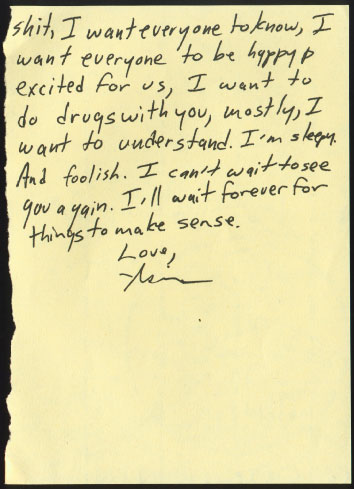 shit, I want everyone to know, I
want everyone to be happy p
excited for us, I want to
do drugs with you, mostly, I
want to understand. I'm sleepy.
And foolish. I can't wait to see
you again. I'll wait forever for
things to make sense.
Love,